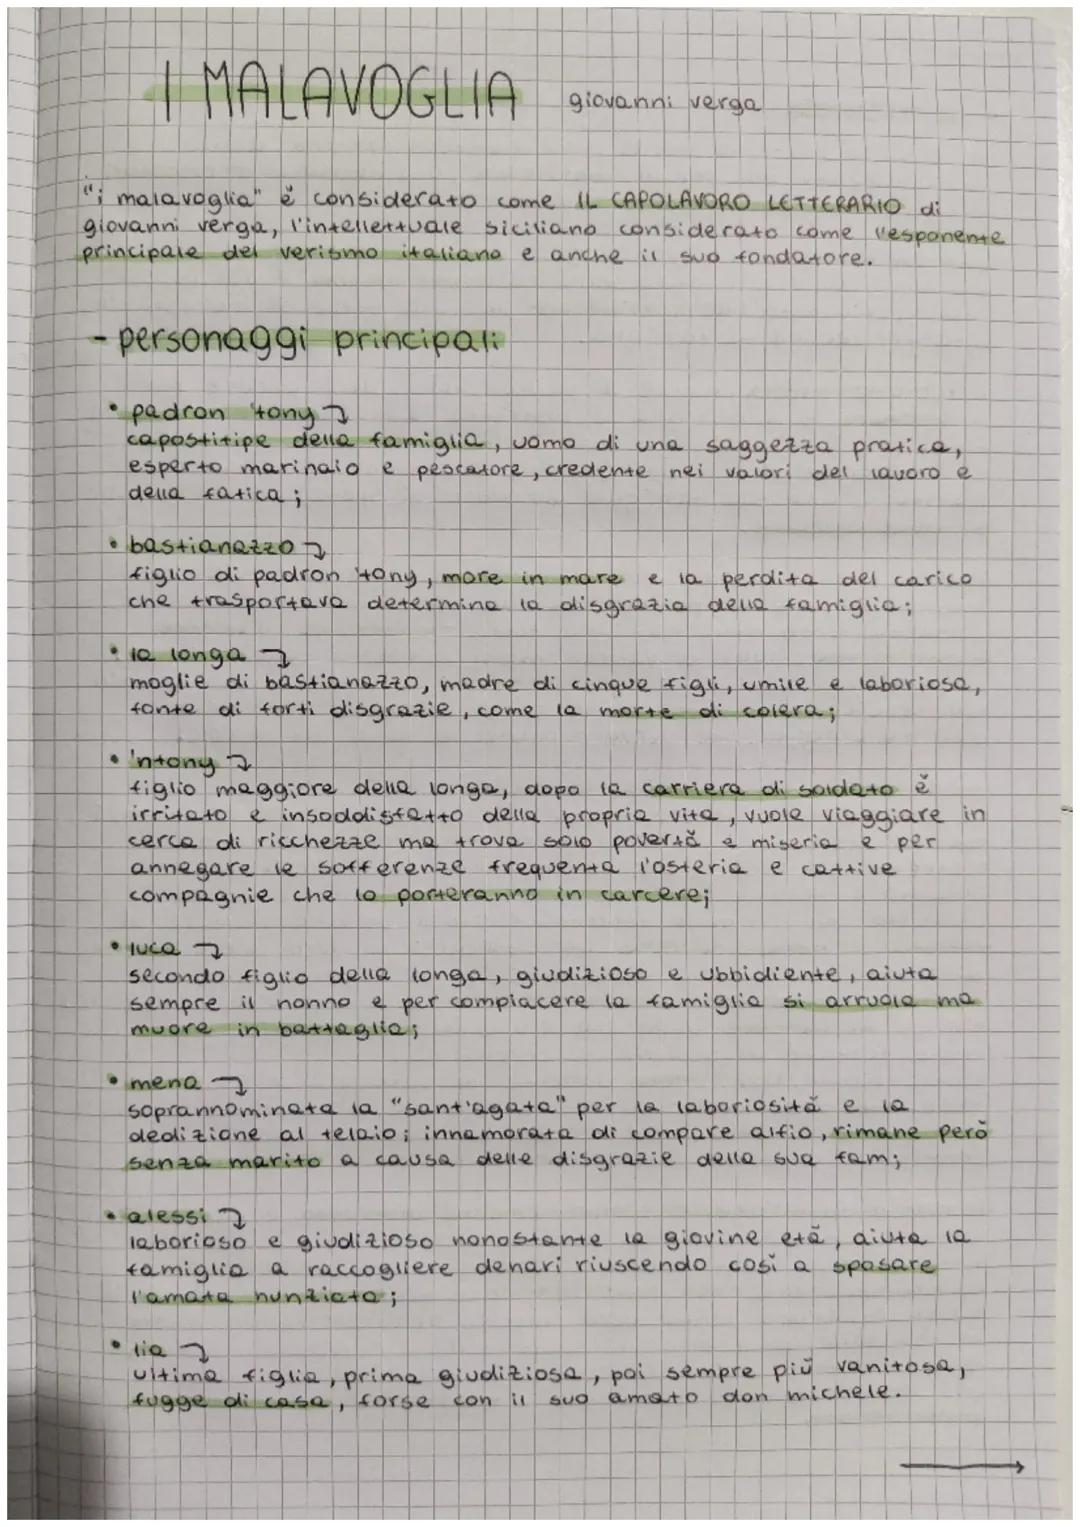 I MALAVOGLIA giovanni verga
"i malavoglia" è considerato come IL CAPOLAVORO LETTERARIO di
giovanni verga, l'intellettuale siciliano considerato come l'esponente
principale del verismo italiano e anche il suo fondatore.
- personaggi principali
• padron 'tony ↴
capostitipe della famiglia, uomo di una saggezza pratica,
esperto marinaio e pescatore, credente nei valori del lavoro e
della fatica;
• bastianazzo ↴
figlio di padron 'tony, more in mare e la perdita del carico
che trasportava determina la disgrazia della famiglia;
• la longa ↴
moglie di bastianazzo, madre di cinque figli, umile e laboriosa,
fonte di forti disgrazie, come la morte di colera;
• 'ntony ↴
figlio maggiore della longa, dopo la carriera di soldato è
irritato e insoddisfatto della propria vita, vuole viaggiare in
cerca di ricchezze ma trova solo povertà e miseria e per
annegare le sofferenze frequenta l'osteria e cattive
compagnie che lo porteranno in carcere;
• luca ↴
secondo figlio della longa, giudizioso e ubbidiente, aiuta
sempre il nonno e per compiacere la famiglia si arruola ma
muore in battaglia;
• mena ↴
soprannominata la "sant'agata" per la laboriosità e la
dedizione al telaio; innamorata di compare alfio, rimane però
senza marito a causa delle disgrazie della sua fam;
• alessi ↴
laborioso e giudizioso nonostante la giovine età, aiuta la
famiglia a raccogliere denari riuscendo così a sposare
l'amata nunziata;
• lia ↴
ultima figlia, prima giudiziosa, poi sempre più vanitosa,
fugge di casa, forse con il suo amato don michele.
→